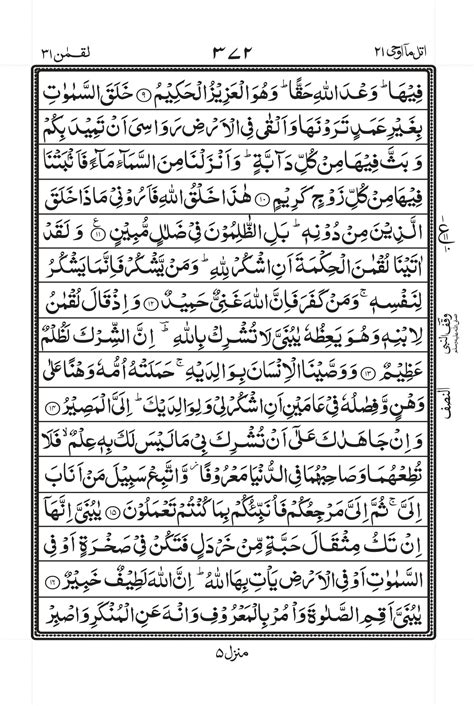 اتل ماۤ اوحی ۲۱ ۳۷۲ لقمٰن ۳۱
فِیْهَا ؕ وَعْدَ اللّٰهِ حَقًّا ؕ وَهُوَ الْعَزِیْزُ الْحَكِیْمُ ۝۹ خَلَقَ السَّمٰوٰتِ
بِغَیْرِ عَمَدٍ تَرَوْنَهَا وَاَلْقٰی فِی الْاَرْضِ رَوَاسِیَ اَنْ تَمِیْدَ بِكُمْ
وَ بَثَّ فِیْهَا مِنْ كُلِّ دَآبَّةٍ ؕ وَ اَنْزَلْنَا مِنَ السَّمَآءِ مَآءً فَاَنْۢبَتْنَا
فِیْهَا مِنْ كُلِّ زَوْجٍ كَرِیْمٍ ۝۱۰ هٰذَا خَلْقُ اللّٰهِ فَاَرُوْنِیْ مَاذَا خَلَقَ
الَّذِیْنَ مِنْ دُوْنِهٖ ؕ بَلِ الظّٰلِمُوْنَ فِیْ ضَلٰلٍ مُّبِیْنٍ ۝۱۱ ع وَ لَقَدْ
اٰتَیْنَا لُقْمٰنَ الْحِكْمَةَ اَنِ اشْكُرْ لِلّٰهِ ؕ وَمَنْ یَّشْكُرْ فَاِنَّمَا یَشْكُرُ
لِنَفْسِهٖ ۚ وَمَنْ كَفَرَ فَاِنَّ اللّٰهَ غَنِیٌّ حَمِیْدٌ ۝۱۲ وَ اِذْ قَالَ لُقْمٰنُ
لِابْنِهٖ وَهُوَ یَعِظُهٗ یٰبُنَیَّ لَا تُشْرِكْ بِاللّٰهِ ؔؕ اِنَّ الشِّرْكَ لَظُلْمٌ
عَظِیْمٌ ۝۱۳ وَوَصَّیْنَا الْاِنْسَانَ بِوَالِدَیْهِ ۚ حَمَلَتْهُ اُمُّهٗ وَهْنًا عَلٰی
وَهْنٍ وَّفِصٰلُهٗ فِیْ عَامَیْنِ اَنِ اشْكُرْ لِیْ وَلِوَالِدَیْكَ ؕ اِلَیَّ الْمَصِیْرُ ۝۱۴
وَ اِنْ جَاهَدٰكَ عَلٰۤی اَنْ تُشْرِكَ بِیْ مَا لَیْسَ لَكَ بِهٖ عِلْمٌ ۙ فَلَا
تُطِعْهُمَا وَصَاحِبْهُمَا فِی الدُّنْیَا مَعْرُوْفًا ؗ وَّاتَّبِعْ سَبِیْلَ مَنْ اَنَابَ
اِلَیَّ ۚ ثُمَّ اِلَیَّ مَرْجِعُكُمْ فَاُنَبِّئُكُمْ بِمَا كُنْتُمْ تَعْمَلُوْنَ ۝۱۵ یٰبُنَیَّ اِنَّهَاۤ
اِنْ تَكُ مِثْقَالَ حَبَّةٍ مِّنْ خَرْدَلٍ فَتَكُنْ فِیْ صَخْرَةٍ اَوْ فِی
السَّمٰوٰتِ اَوْ فِی الْاَرْضِ یَاْتِ بِهَا اللّٰهُ ؕ اِنَّ اللّٰهَ لَطِیْفٌ خَبِیْرٌ ۝۱۶
یٰبُنَیَّ اَقِمِ الصَّلٰوةَ وَاْمُرْ بِالْمَعْرُوْفِ وَانْهَ عَنِ الْمُنْكَرِ وَاصْبِرْ
وقف النبی
النصف
منزل ۵